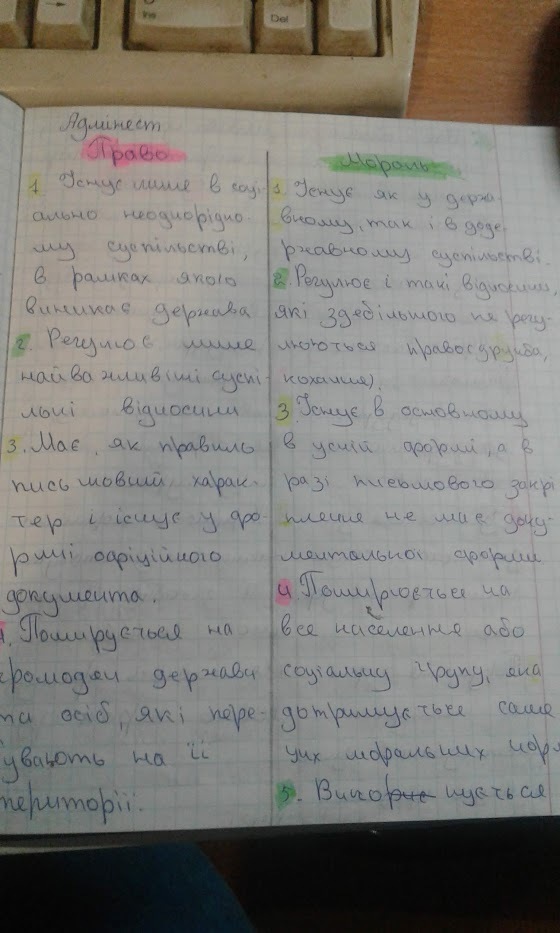 Ins
Del
Адмінест
Право
1. Існує лише в соці-
ально неоднорідно-
му суспільстві,
в рамках якого
виникає держава
2. Регулює лише
найважливіші суспі-
льні відносини
3. Має, як правиль
письмовий харак-
тер і існує у фо-
рмі офіційного
документа.
4. Поширується на
громодян держави
та осіб, які пере-
бувають на її
території.
Мораль
1. Існує як у держа-
вному, так і в доде-
ржавному суспільстві.
2. Регулює і такі відносини,
які здебільшого не регу-
люються право(дружба,
кохання).
3. Існує в основному
в усній формі, а в
разі письмового закрі
плення не має доку-
ментальної форми
4. Поширюється на
все населення або
соціальну групу, яка
дотримується саме
цих моральних норм
5. Викорис нується